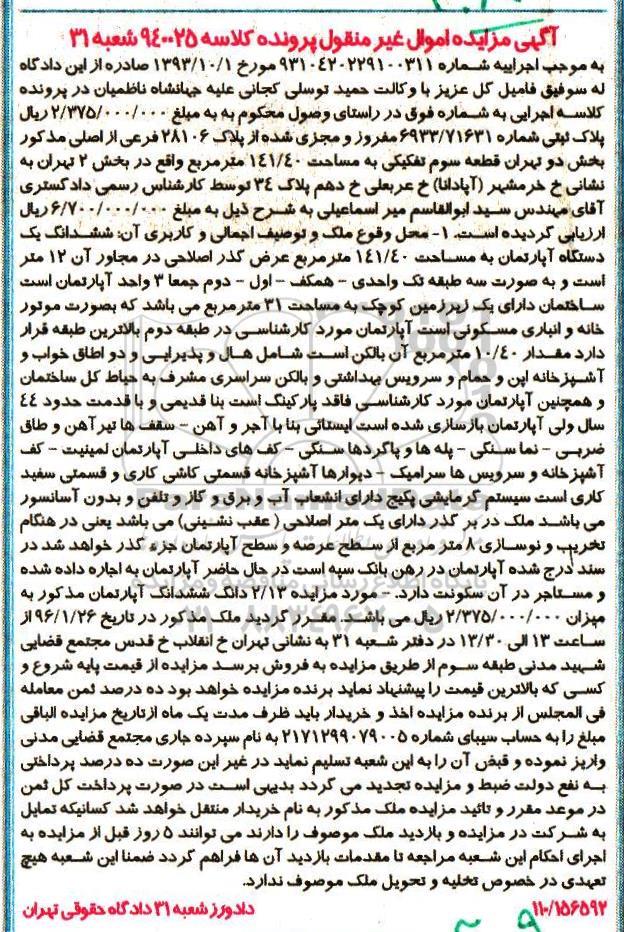 آگهی مزایده اموال غیر منقول پرونده کلاسه ۹۴۰۰۲۵ شعبه ۳۱
به موجب اجراییه شماره ۹۳۱۰۴۲۰۲۲۹۱۰۰۳۱۱ مورخ ۱۳۹۳/۱۰/۱ صادره از این دادگاه
له سوفیق فامیل گل عزیز با وکالت حمید توسلی کجانی علیه جهانشاه ناظمیان در پرونده
کلاسه اجرایی به شماره فوق در راستای وصول محکوم به به مبلغ ۲/۳۷۵/۰۰۰/۰۰۰ ریال
پلاک ثبتی شماره ۶۹۳۳/۷۱۶۳۱ مفروز و مجزی شده از پلاک ۲۸۱۰۶ فرعی از اصلی مذکور
بخش دو تهران قطعه سوم تفکیکی به مساحت ۱۴۱/۴۰ مترمربع واقع در بخش ۲ تهران به
نشانی خ خرمشهر (آپادانا) خ عربعلی خ دهم پلاک ۳۴ توسط کارشناس رسمی دادگستری
آقای مهندس سید ابوالقاسم میر اسماعیلی به شرح ذیل به مبلغ ۶/۷۰۰/۰۰۰/۰۰۰ ریال
ارزیابی گردیده است. ۱- محل وقوع ملک و توصیف اجمالی و کاربری آن: ششدانگ یک
دستگاه آپارتمان به مساحت ۱۴۱/۴۰ مترمربع عرض گذر اصلاحی در مجاور آن ۱۲ متر
است و به صورت سه طبقه تک واحدی - همکف - اول - دوم جمعا ۳ واحد آپارتمان است
ساختمان دارای یک زیرزمین کوچک به مساحت ۳۱ مترمربع می باشد که بصورت موتور
خانه و انباری مسکونی است آپارتمان مورد کارشناسی در طبقه دوم بالاترین طبقه قرار
دارد مقدار ۱۰/۴۰ مترمربع آن بالکن است شامل هال و پذیرایی و دو اطاق خواب و
آشپزخانه اپن و حمام و سرویس بهداشتی و بالکن سراسری مشرف به حیاط کل ساختمان
و همچنین آپارتمان مورد کارشناسی فاقد پارکینگ است بنا قدیمی و با قدمت حدود ۴۴
سال ولی آپارتمان بازسازی شده است ایستائی بنا با آجر و آهن - سقف ها تیرآهن و طاق
ضربی - نما سنگی - پله ها و پاگردها سنگی - کف های داخلی آپارتمان لمینیت - کف
آشپزخانه و سرویس ها سرامیک - دیوارها آشپزخانه قسمتی کاشی کاری و قسمتی سفید
کاری است سیستم گرمایشی پکیج دارای انشعاب آب و برق و گاز و تلفن و بدون آسانسور
می باشد ملک در بر گذر دارای یک متر اصلاحی (عقب نشینی) می باشد یعنی در هنگام
تخریب و نوسازی ۸ متر مربع از سطح عرصه و سطح آپارتمان جزء گذر خواهد شد در
سند درج شده آپارتمان در رهن بانک سپه است در حال حاضر آپارتمان به اجاره داده شده
و مستاجر در آن سکونت دارد. - مورد مزایده ۲/۱۳ دانگ ششدانگ آپارتمان مذکور به
میزان ۲/۳۷۵/۰۰۰/۰۰۰ ریال می باشد. مقرر گردید ملک مذکور در تاریخ ۹۶/۱/۲۶ از
ساعت ۱۳ الی ۱۳/۳۰ در دفتر شعبه ۳۱ به نشانی تهران خ انقلاب خ قدس مجتمع قضایی
شهید مدنی طبقه سوم از طریق مزایده به فروش برسد مزایده از قیمت پایه شروع و
کسی که بالاترین قیمت را پیشنهاد نماید برنده مزایده خواهد بود ده درصد ثمن معامله
فی المجلس از برنده مزایده اخذ و خریدار باید ظرف مدت یک ماه از تاریخ مزایده الباقی
مبلغ را به حساب سیبای شماره ۲۱۷۱۲۹۹۰۷۹۰۰۵ به نام سپرده جاری مجتمع قضایی مدنی
واریز نموده و قبض آن را به این شعبه تسلیم نماید در غیر این صورت ده درصد پرداختی
به نفع دولت ضبط و مزایده تجدید می گردد بدیهی است در صورت پرداخت کل ثمن
در موعد مقرر و تائید مزایده ملک مذکور به نام خریدار منتقل خواهد شد کسانیکه تمایل
به شرکت در مزایده و بازدید ملک موصوف را دارند می توانند ۵ روز قبل از مزایده به
اجرای احکام این شعبه مراجعه تا مقدمات بازدید آن ها فراهم گردد ضمنا این شعبه هیچ
تعهدی در خصوص تخلیه و تحویل ملک موصوف ندارد.
۱۱۰/۱۵۶۵۹۲ دادورز شعبه ۳۱ دادگاه حقوقی تهران